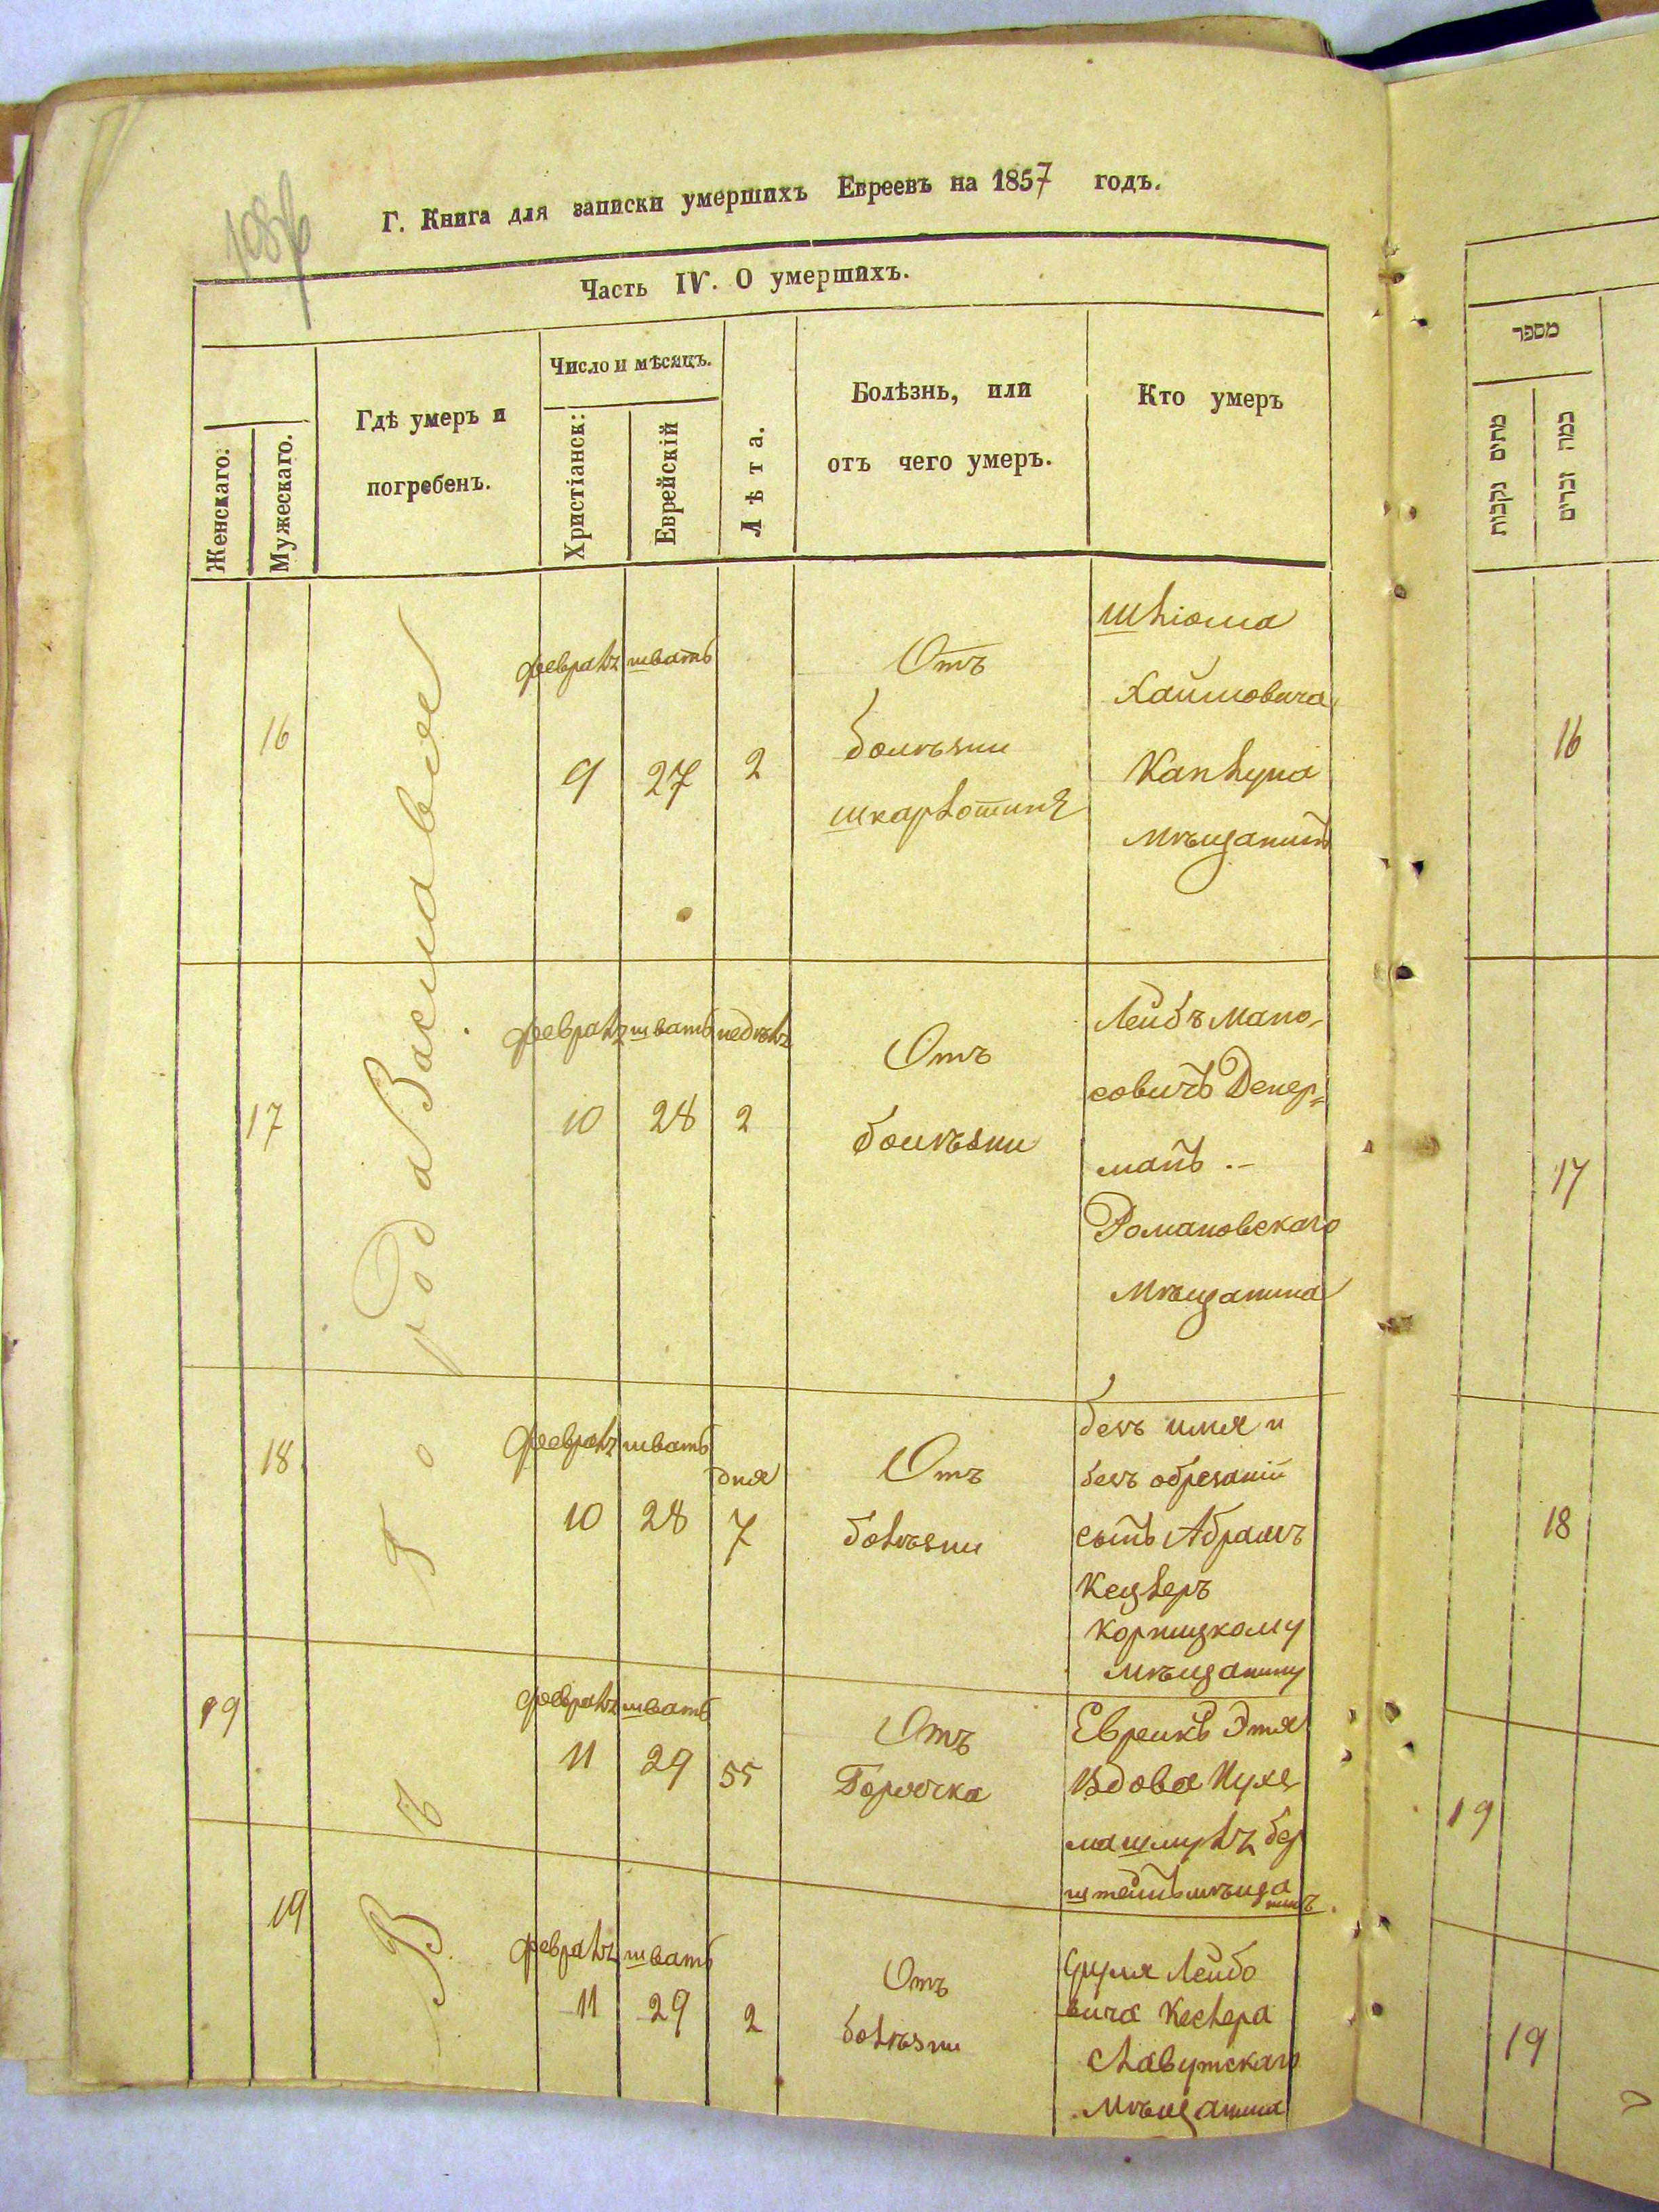 1086
Г. Книга для записки умершихъ Евреевъ на 1857 годъ.
Часть IV. О умершихъ.
Женскаго.
Мужескаго.
Гдѣ умеръ и
погребенъ.
Число и мѣсяцъ.
Христіанск:
Еврейскій
Лѣта.
Болѣзнь, или
отъ чего умеръ.
Кто умеръ
Въ Города Заславлѣ
16
февраль
9
шватъ
27
2
Отъ
болѣзни
шкарлотинѣ
Шліома
Хаимовича
Каплуна
мѣщанинъ
17
февраль
10
шватъ
28
недѣль
2
Отъ
болѣзни
Лейбъ Мано-
совичъ Денер=
манъ .-
Романовскаго
мѣщанина
18
февраль
10
шватъ
28
дня
7
Отъ
болѣзни
безъ имя и
безъ обрезаній
сынъ Абрамъ
Кецлеръ
Корницкому
мѣщанину
19
февраль
11
шватъ
29
55
Отъ
Горячка
Евреикѣ Этя
Вдова
19
февраль
11
шватъ
29
2
Отъ
болѣзни
Лейбо
вича Кеслера
Славутскаго
мѣщанина
מספר
מתים נקבות
כמה זכרים
16
17
18
19
19